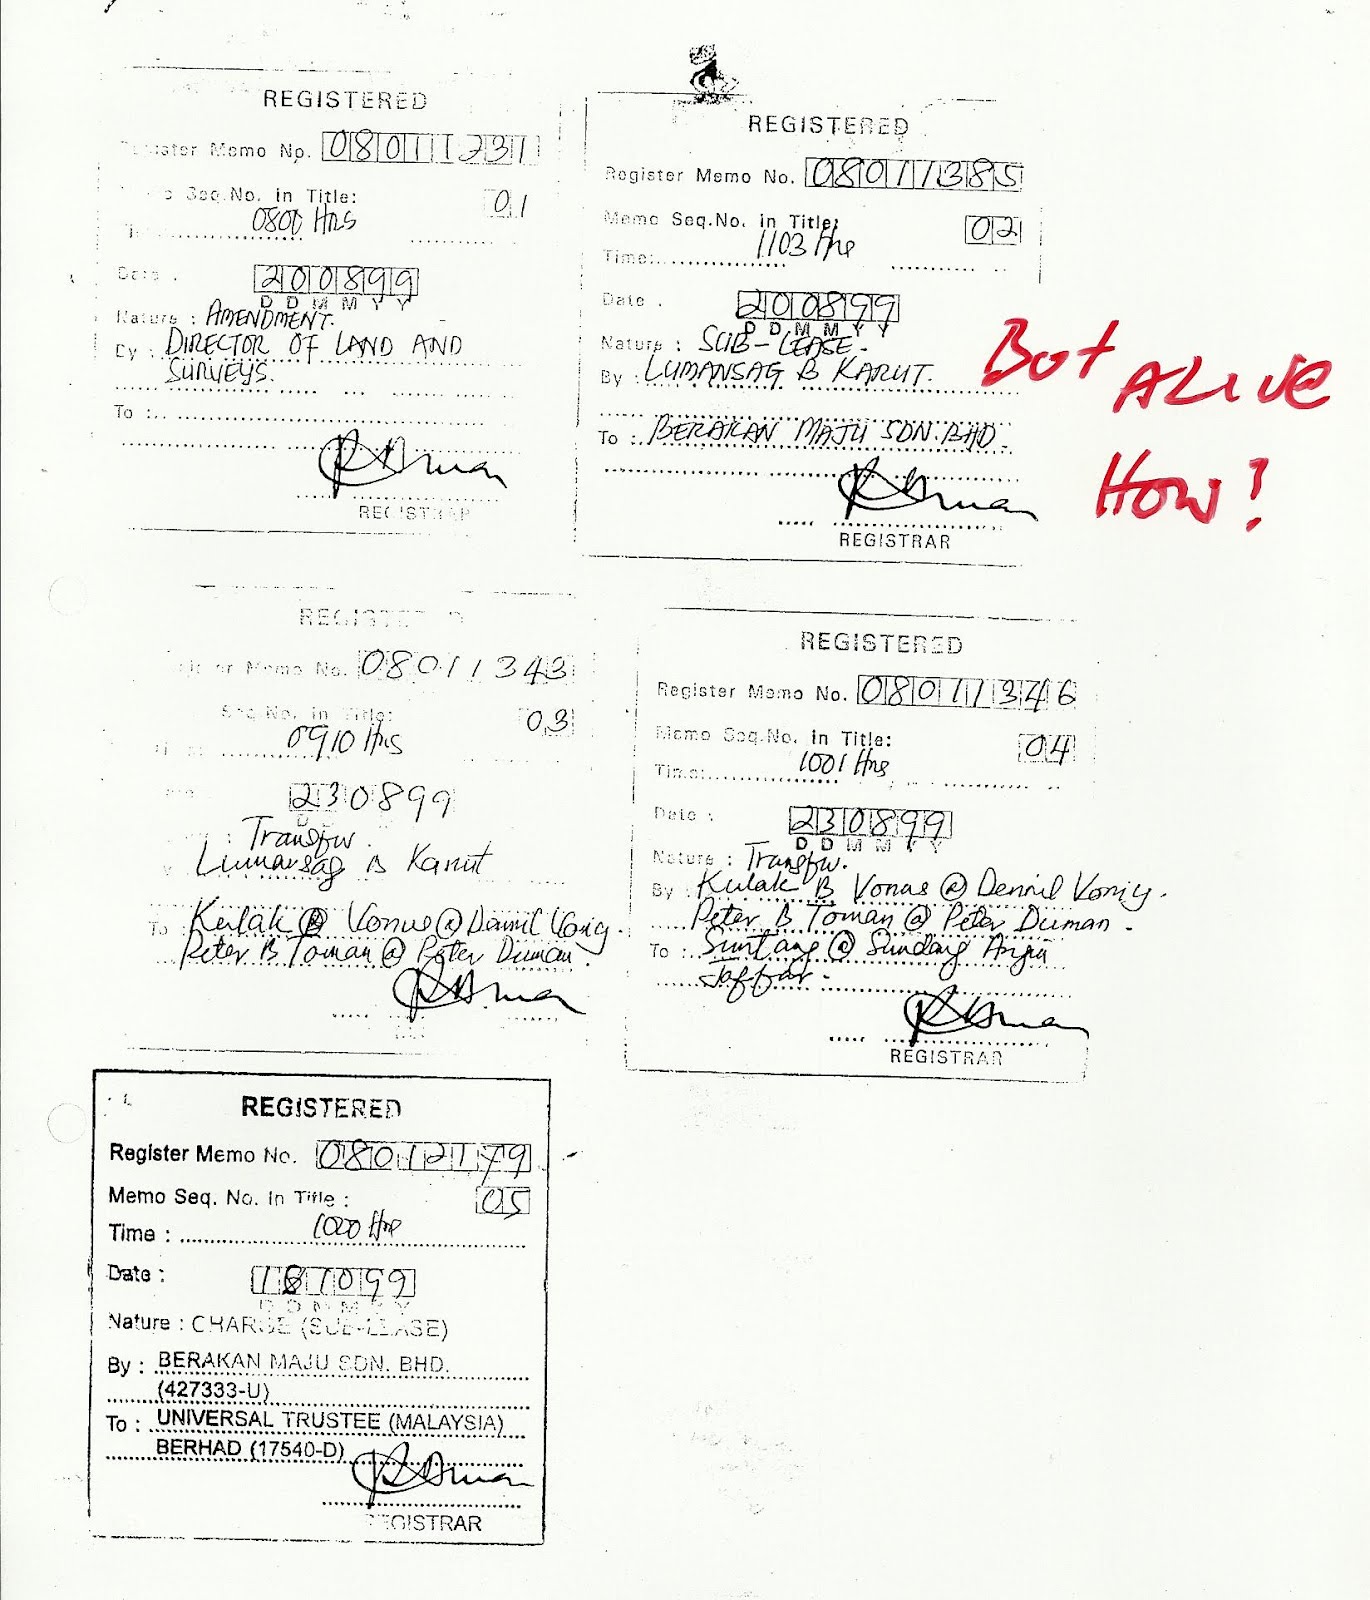 REGISTERED
Register Memo No. 08011231
Seq.No. in Title: 01
0800 Hrs
Date : 200899
D D M M Y Y
Nature : AMENDMENT.
By : DIRECTOR OF LAND AND
SURVEYS.
To :
REGISTRAR
REGISTERED
Register Memo No. 08011385
Memo Seq.No. in Title: 02
Time: 1103 Hrs
Date : 200899
D D M M Y Y
Nature : SUB-LEASE.
By : LUMANSAG B KARUT.
To : BERAKAN MAJU SDN.BHD.
REGISTRAR
But ALIVE
How?
REGISTERED
Memo No. 08011343
Seq.No. in Title: 03
0910 Hrs
230899
: Transfer.
Lumansag B Karut
To : Kulak B Vonus @ Dennil Vonig.
Peter B Toman @ Peter Duman.
REGISTERED
Register Memo No. 08011346
Memo Seq.No. in Title: 04
Time: 1001 Hrs
Date : 230899
D D M M Y Y
Nature : Transfer.
By : Kulak B Vonas @ Dennil Vonig.
Peter B Toman @ Peter Duman.
To : Suntang @ Sundang Anjia
Jaffar.
REGISTRAR
REGISTERED
Register Memo No. 08012179
Memo Seq. No. in Title : 05
Time : 1000 Hrs
Date : 181099
D D M M Y Y
Nature : CHARGE (SUB-LEASE)
By : BERAKAN MAJU SDN. BHD.
(427333-U)
To : UNIVERSAL TRUSTEE (MALAYSIA)
BERHAD (17540-D)
REGISTRAR